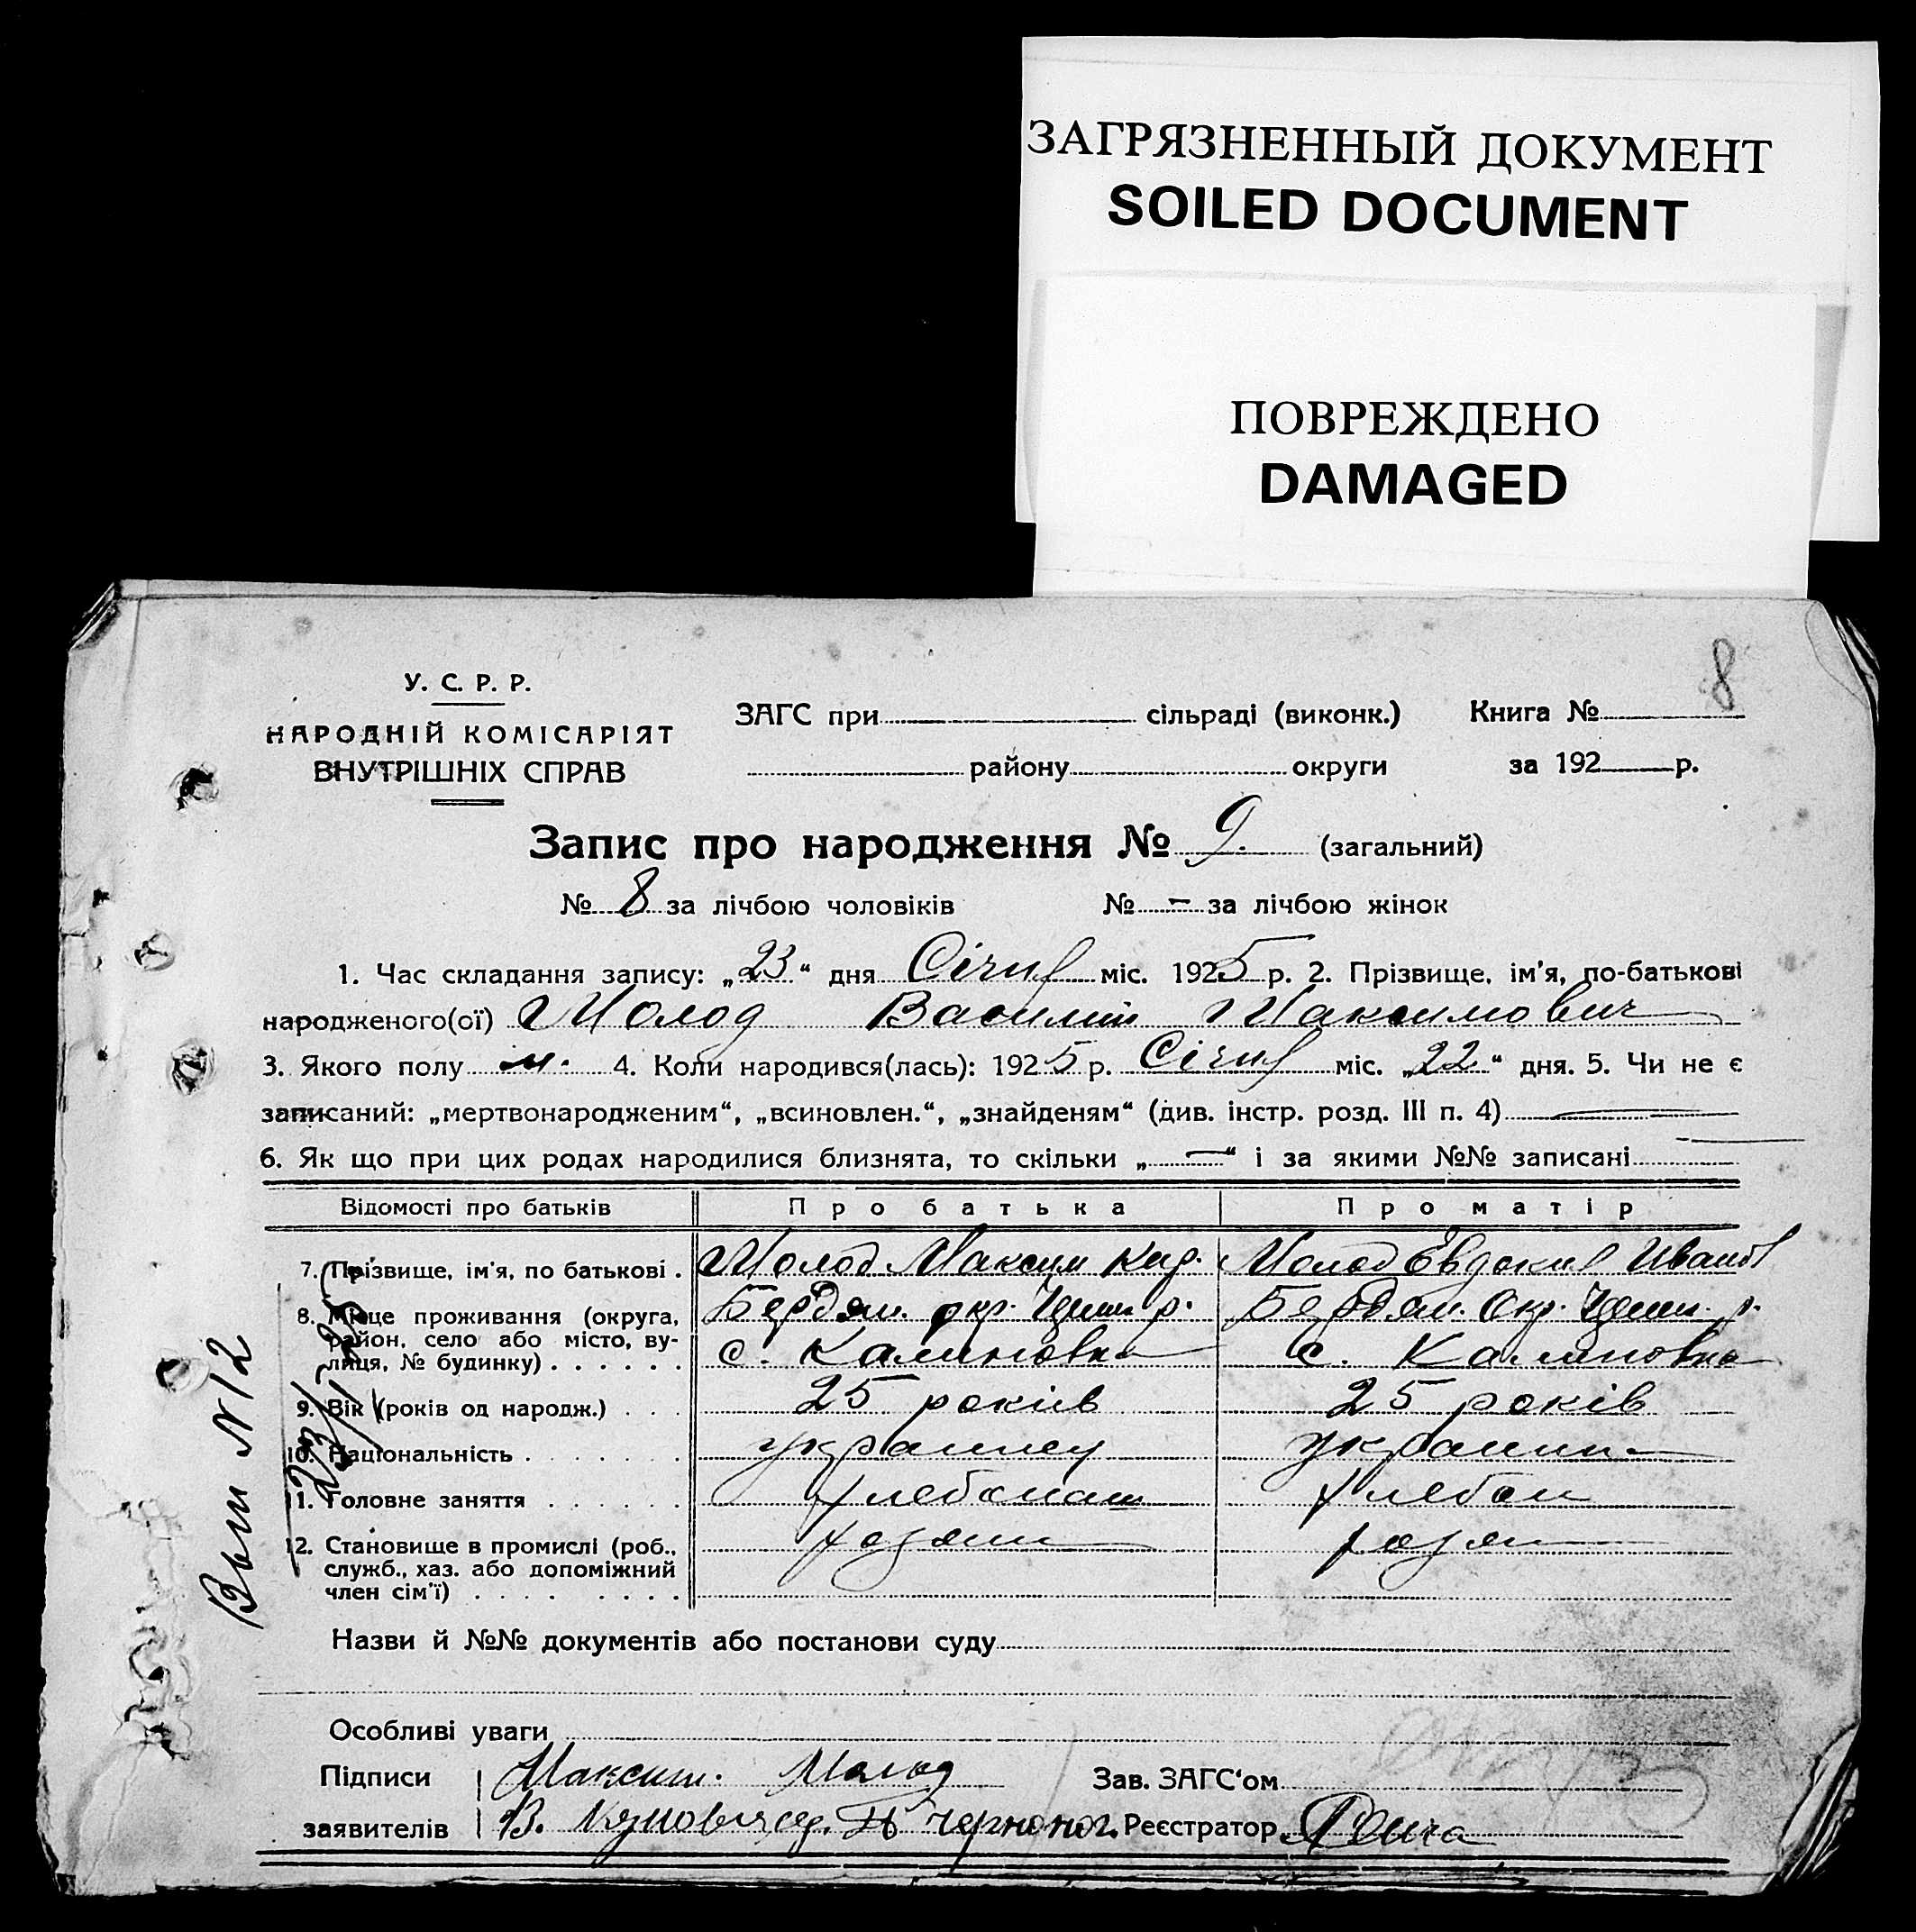 ЗАГРЯЗНЕННЫЙ ДОКУМЕНТ
SOILED DOCUMENT
ПОВРЕЖДЕНО
DAMAGED
8
У. С. Р. Р.
НАРОДНІЙ КОМІСАРІЯТ
ВНУТРІШНІХ СПРАВ
ЗАГС при сільраді (виконк.) Книга №
району округи за 192 р.
Запис про народження № 9. (загальний)
№ 8 за лічбою чоловіків № - за лічбою жінок
1. Час складання запису: „23“ дня Січня міс. 1925 р. 2. Прізвище, ім'я, по-батькові
народженого(ої) Молод Василий Максимович
3. Якого полу м. 4. Коли народився(лась): 1925 р. Січня міс. „22“ дня. 5. Чи не є
записаний: „мертвонародженим“, „всиновлен.“, „знайденям“ (див. інстр. розд. III п. 4) —
6. Як що при цих родах народилися близнята, то скільки „—“ і за якими №№ записані —
Відомості про батьків Про батька Про матір
7. Прізвище, ім'я, по батькові . Молод Максим Кир. Молод Евдокия Иванов
8. Місце проживання (округа, Бердян. окр. Цеми р. Бердян. Окр. Цеми. р.
район, село або місто, ву-
лиця, № будинку) . . . . . . с. Калиновка с. Калиновка
9. Вік (років од народж.) . . . 25 років 25 років
10. Національність . . . . . . . украинец украинка
11. Головне заняття . . . . . . хлебопаш хлебоп
12. Становище в промислі (роб., хозяин хозяи
служб., хаз. або допоміжний
член сім'ї) . . . . . . . .
Вып №12
Назви й №№ документів або постанови суду
Особливі уваги
Підписи Максим. Молод Зав. ЗАГС'ом
заявителів В. Реєстратор